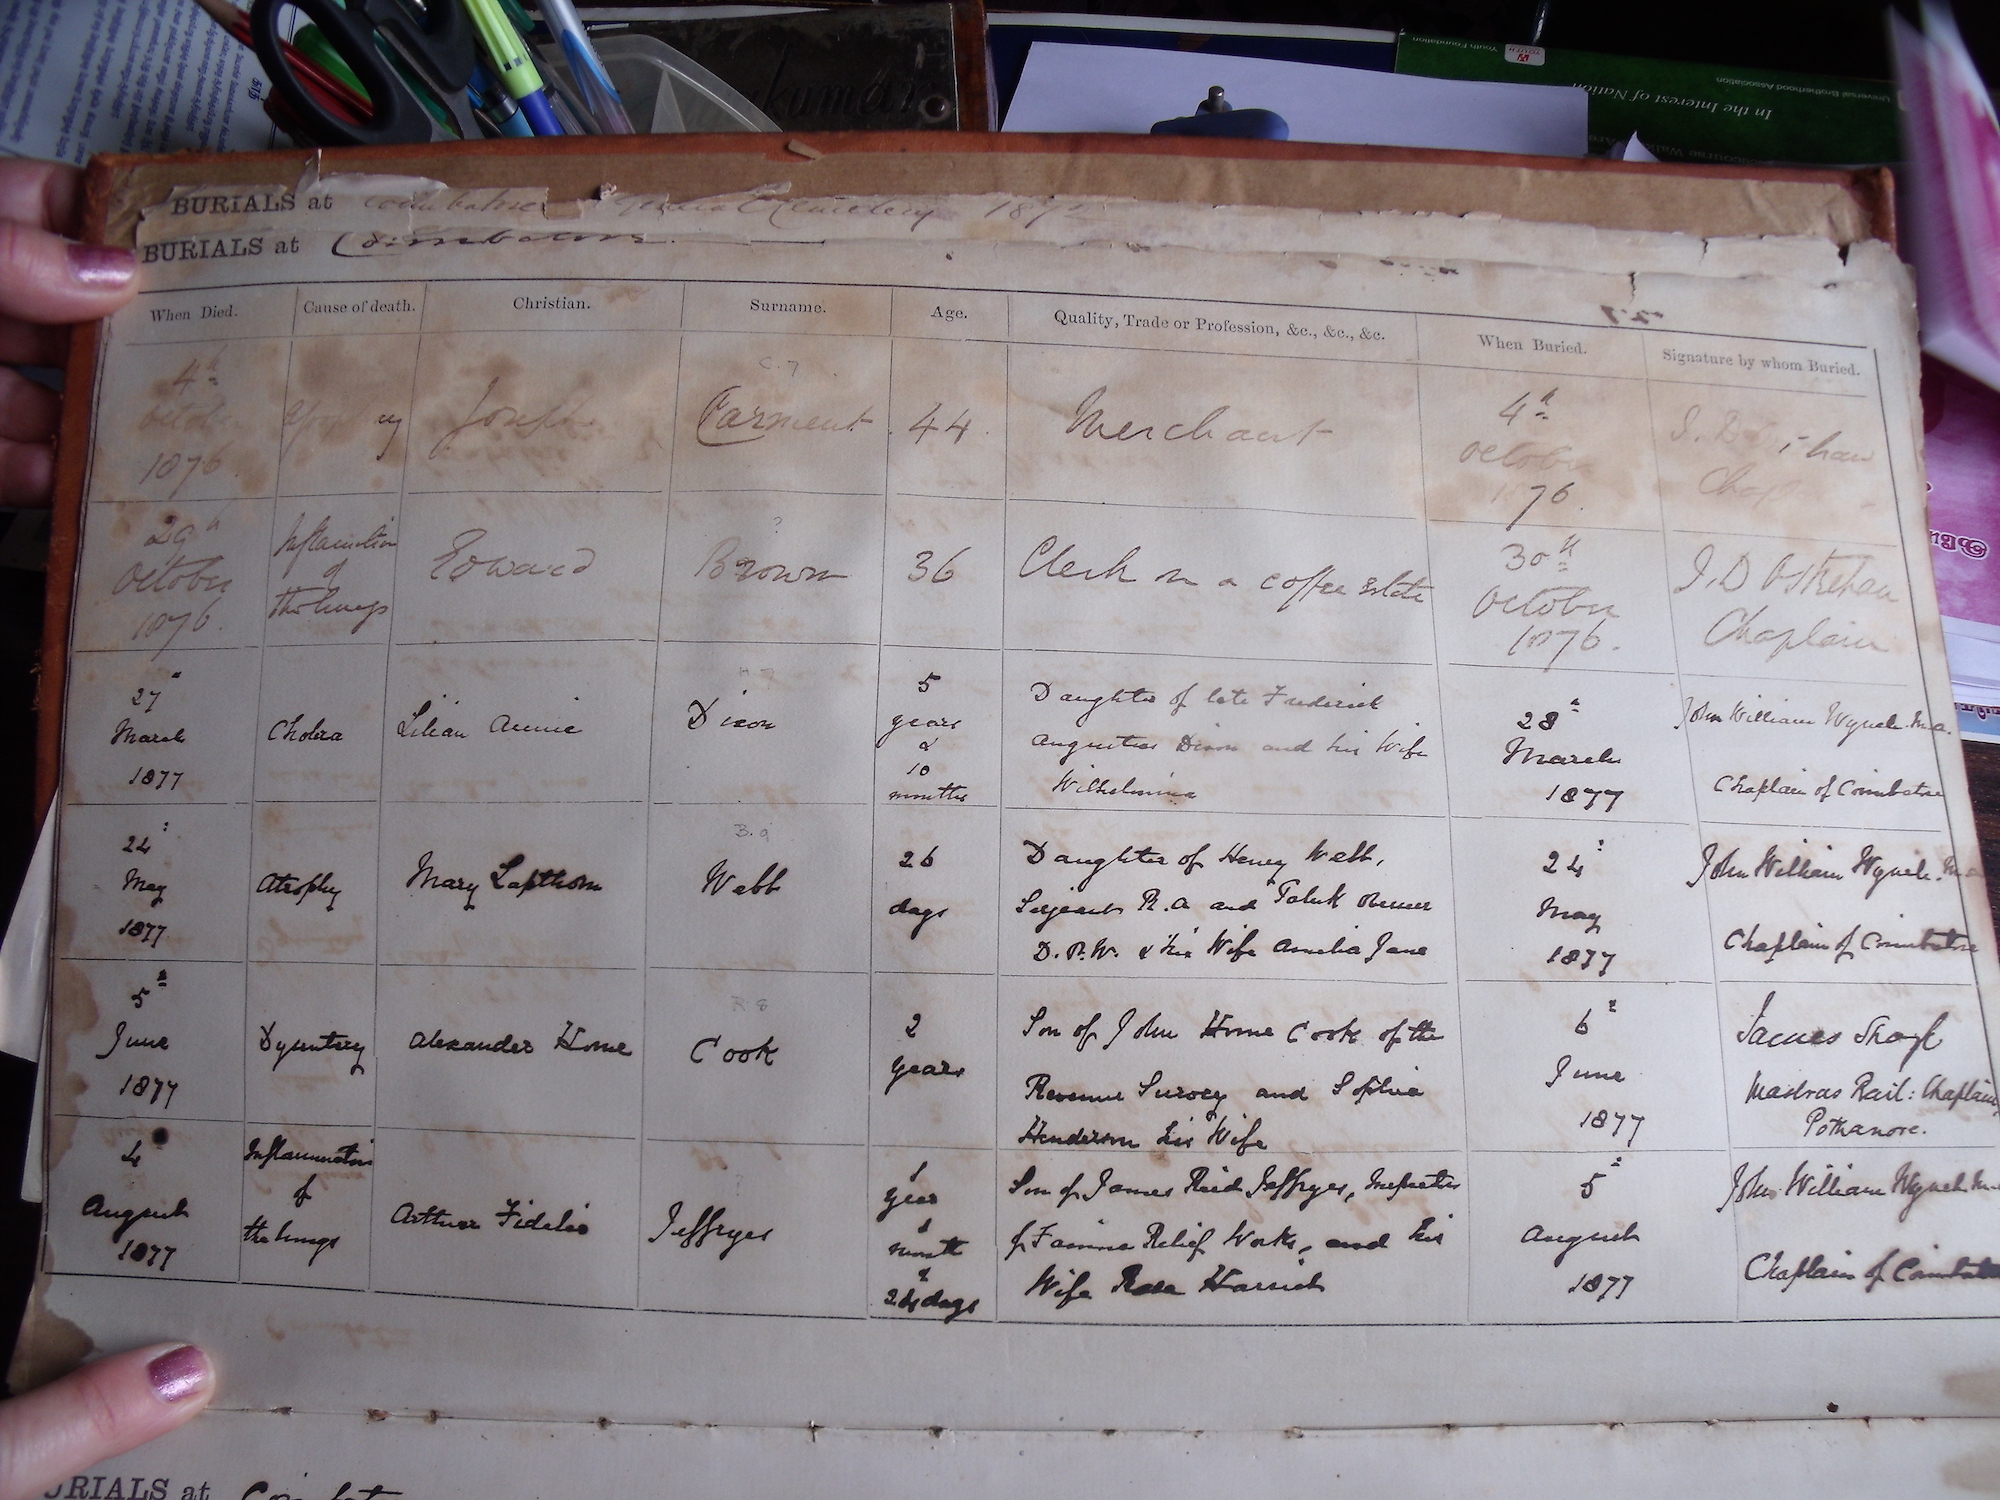 In the Interest of Nation
Universal Brotherhood Association
Youth Foundation
BURIALS at Coimbatore General Cemetery 187
BURIALS at Coimbatore.
When Died. Cause of death. Christian. Surname. Age. Quality, Trade or Profession, &c., &c., &c. When Buried. Signature by whom Buried.
C. 7
4th
October
1876
Joseph
Carment
44
Merchant
4th
October
1876
Chaplain
29th
October
1876
Inflamation
of
the lungs
Edward
Brown
36
Clerk in a coffee estate
30th
October
1876.
Chaplain
27th
March
1877
Cholera
Lilian Annie
Dixon
5
years
&
10
months
Daughter of late Frederick
Augustus Dixon and his Wife
Wilhelmina
28th
March
1877
John William Wynch. M.A.
Chaplain of Coimbatore
24th
May
1877
Atrophy
Mary Lapthorn
B. 9
Webb
26
days
Daughter of Henry Webb,
Serjeant R.A and Taluk
D.P.W. & his Wife Amelia Jane
24th
May
1877
John William Wynch. M.A
Chaplain of Coimbatore
5th
June
1877
Dysentery
Alexander Home
Cook
2
years
Son of John Home Cook of the
Revenue Survey and Sophia
Henderson his Wife
6th
June
1877
James
Madras Rail: Chaplain
4th
August
1877
Inflammation
of
the lungs
Arthur Fidelio
Jeffryes
1
year
1
month
&
24 days
Son of James Reid Jeffryes, Inspector
of Famine Relief Works, and his
Wife Rosa Harriet
5th
August
1877
John William Wynch M.
Chaplain of Coimbatore
URIALS at